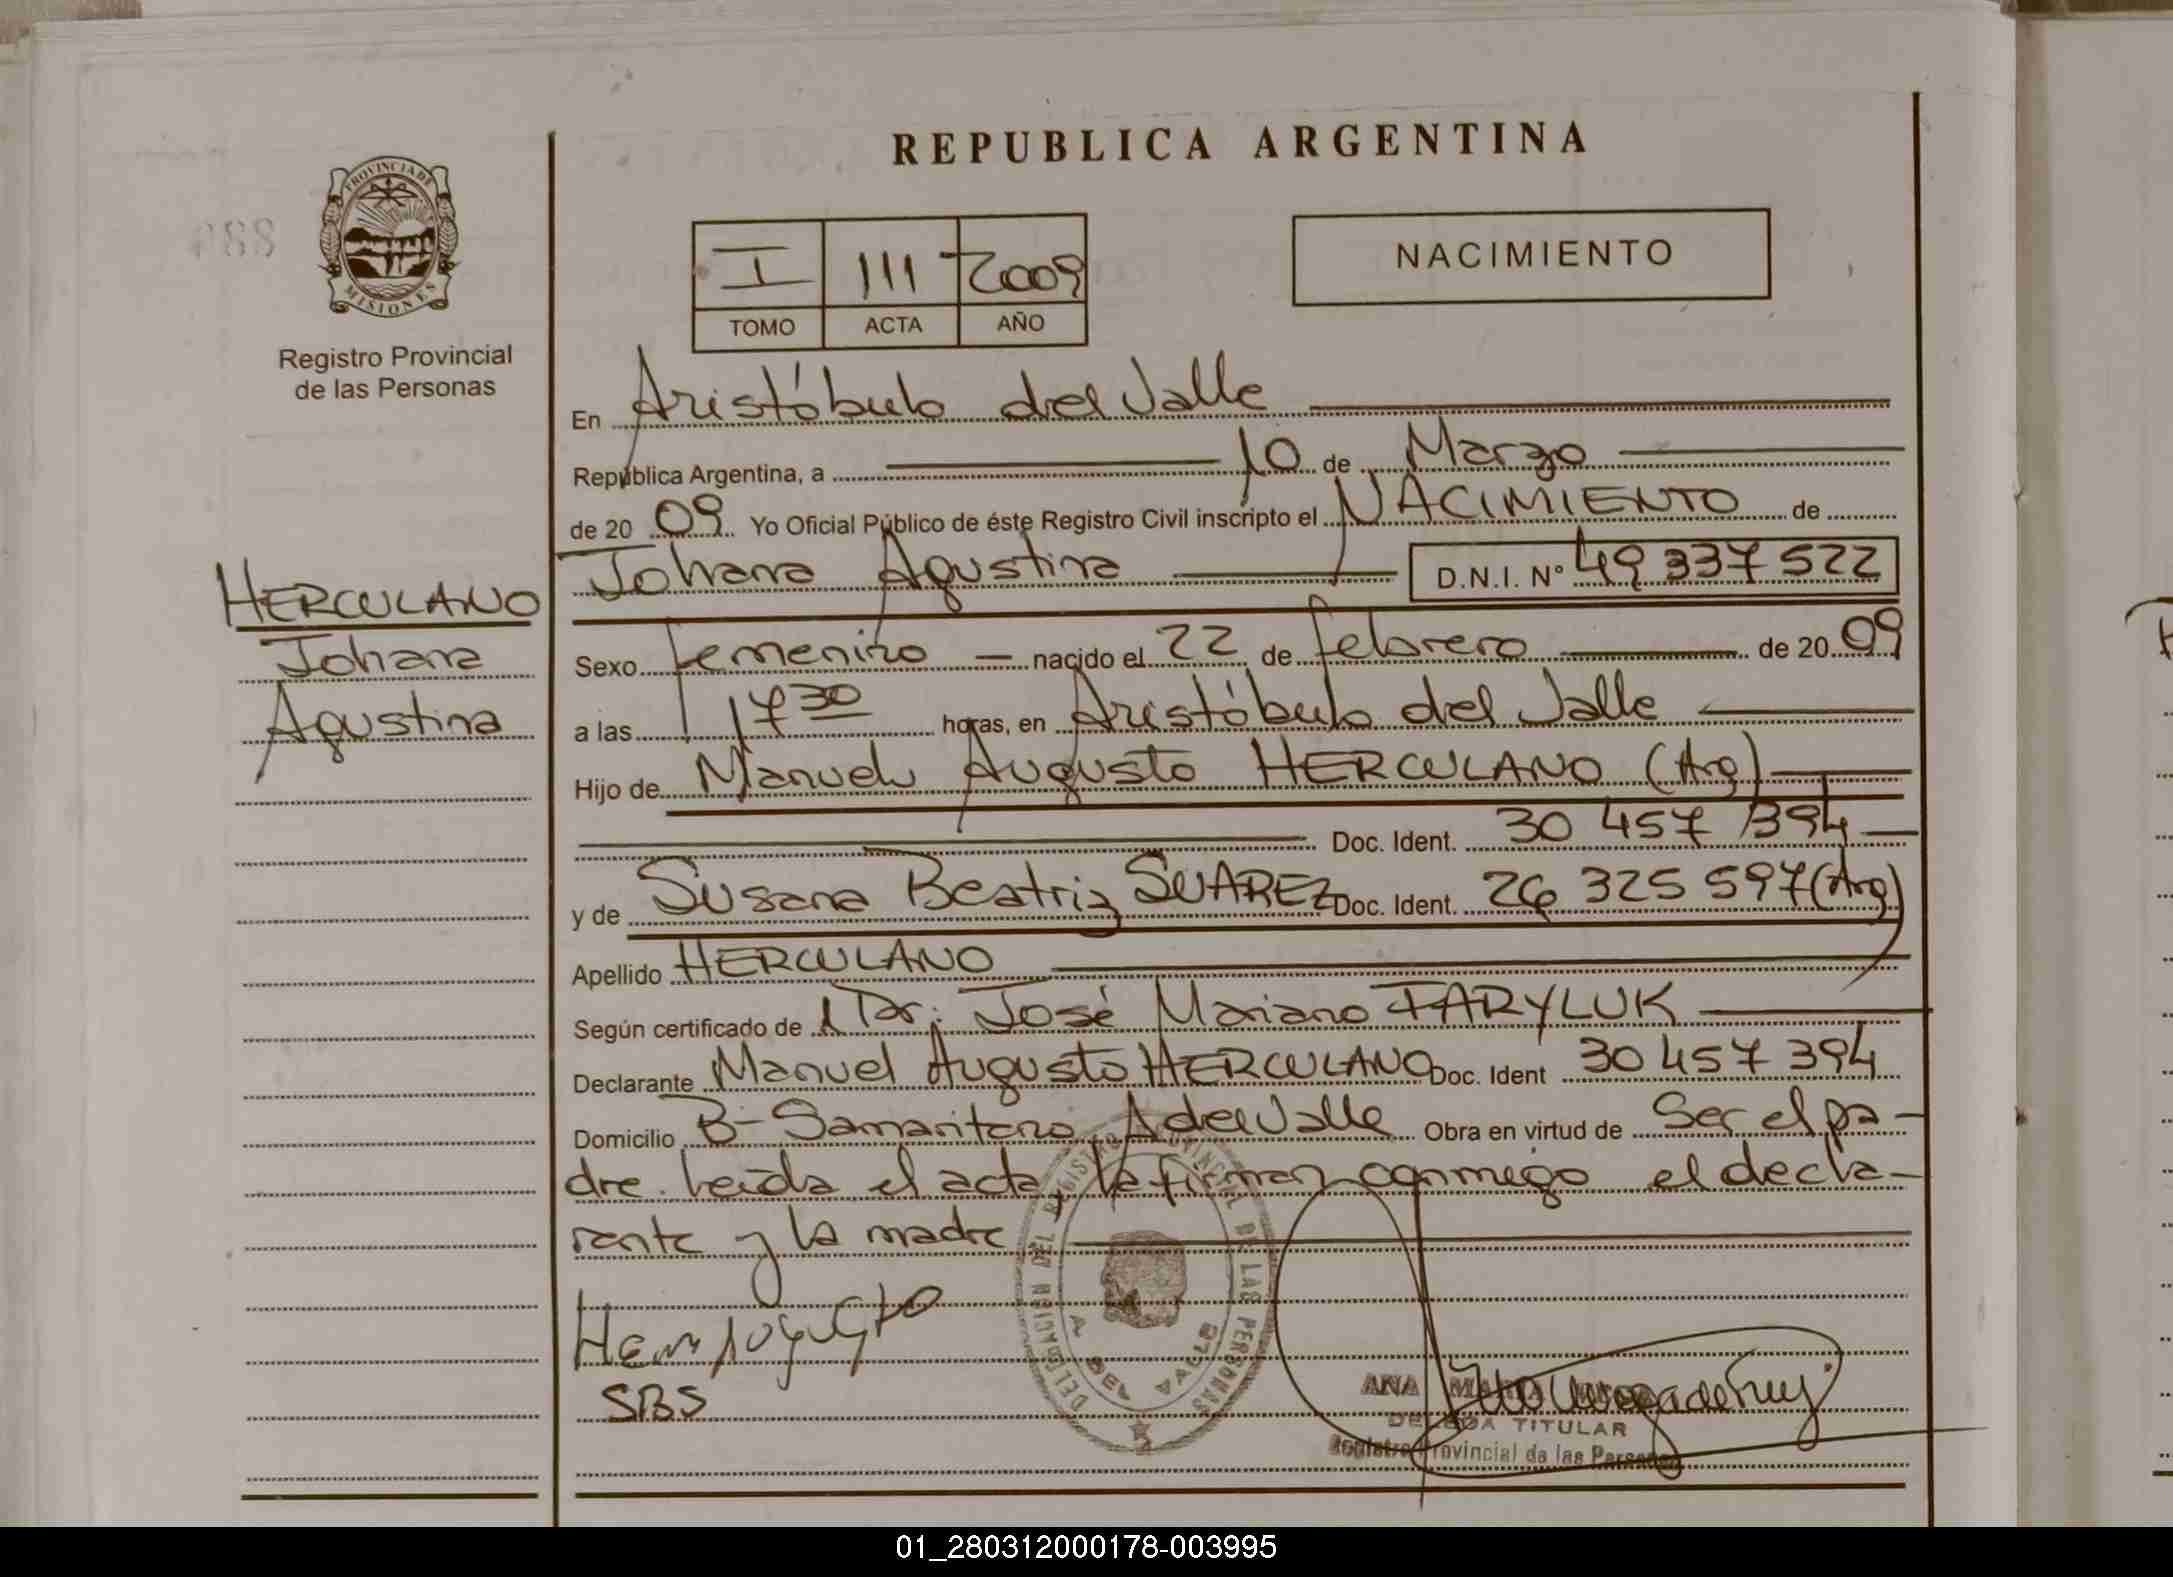 REPUBLICA ARGENTINA
PROVINCIA DE
MISIONES
Registro Provincial
de las Personas
I 111 2009
TOMO ACTA AÑO
NACIMIENTO
En Aristóbulo del Valle
República Argentina, a 10 de Marzo
de 2009 Yo Oficial Público de éste Registro Civil inscripto el NACIMIENTO de
Johana Agustina D.N.I. Nº 49 337 522
HERCULANO
Johana
Agustina
Sexo femenino nacido el 22 de febrero de 2009
a las 17 30 horas, en Aristóbulo del Valle
Hijo de Manuel Augusto HERCULANO (Arg)
Doc. Ident. 30 457 394
y de Susana Beatriz SUAREZ Doc. Ident. 26 325 597 (Arg)
Apellido HERCULANO
Según certificado de Dr. José Mariano TARYLUK
Declarante Manuel Augusto HERCULANO Doc. Ident 30 457 394
Domicilio B- Samaritano, A del Valle Obra en virtud de Ser el pa-
dre. Leída el acta, la firman conmigo el decla-
rante y la madre
SBS
DELEGACION DEL REGISTRO PROVINCIAL DE LAS PERSONAS
A. DEL VALLE
ANA MARIA
DELEGADA TITULAR
Registro Provincial de las Personas
01_280312000178-003995